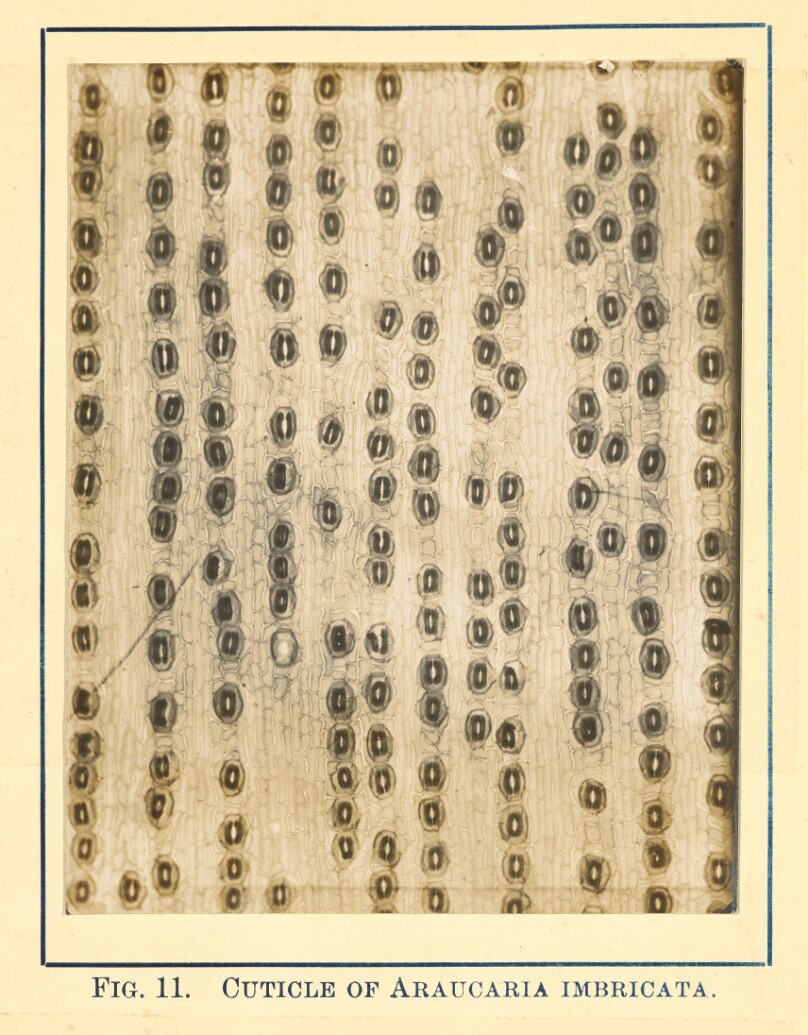 Fig. 11. Cuticle of Araucaria imbricata.